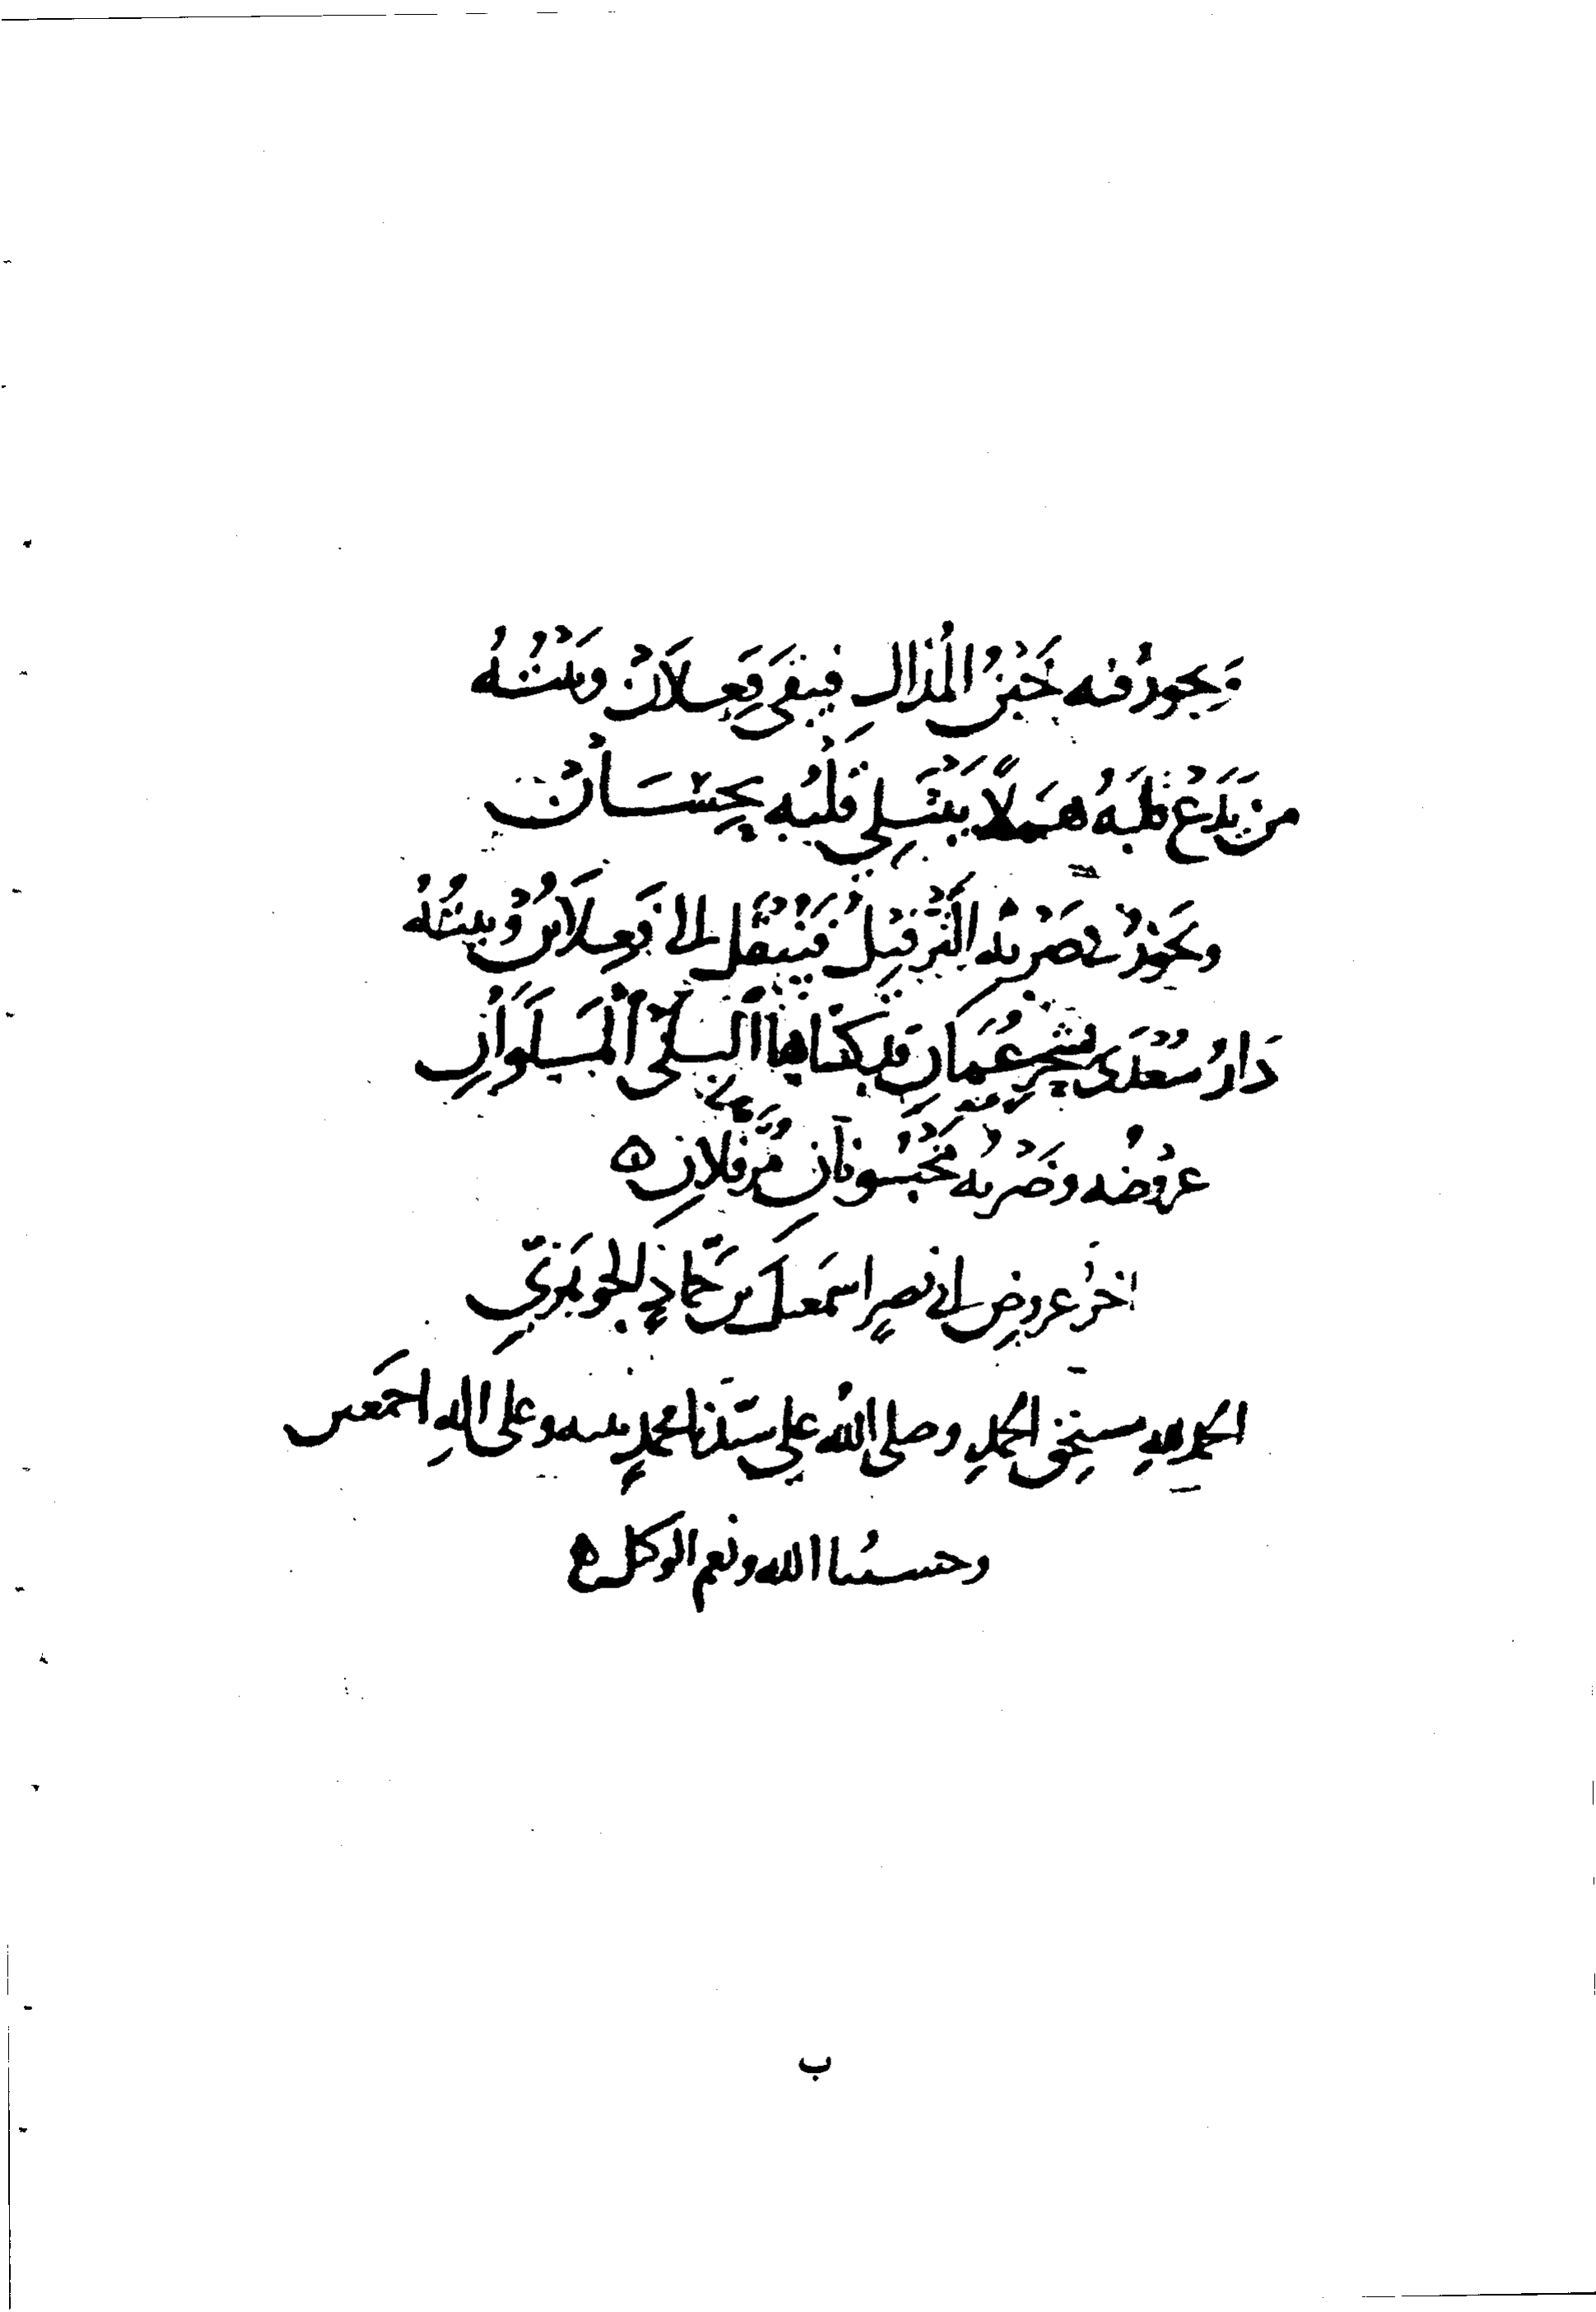 وَيجوز فيه خَبْنُ المُذَالِ فيبقى فَعِلَانْ وبَيْتُهُ
من يَدَعْ قلبَهُ هَمَلًا يَبْتَلي قَلْبُه بِحِسَانْ
ويَجوزُ في ضَرْبِهِ التَّرفيلُ فَيُنْقَلُ إلى فَعِلَاتُنْ وبيتُهُ
دَارُ سُعْدَى بشَحْرِ عُمَانِ قد كساها البِلَى المَلَوَانِ
عروضُه وضَرْبُه مَخْبُونَانِ مُرَفَّلانِ
اخرُ عروض ابي نصرٍ اسمَعيل بن حَمّادٍ الجوهَريّ
الحمد لله مستحِق الحمدِ وصلى اللهُ علي سيّدنا محمدٍ نبيه وعلى اله اجمَعين
وحسبُنا الله ونعم الوكيل
ب